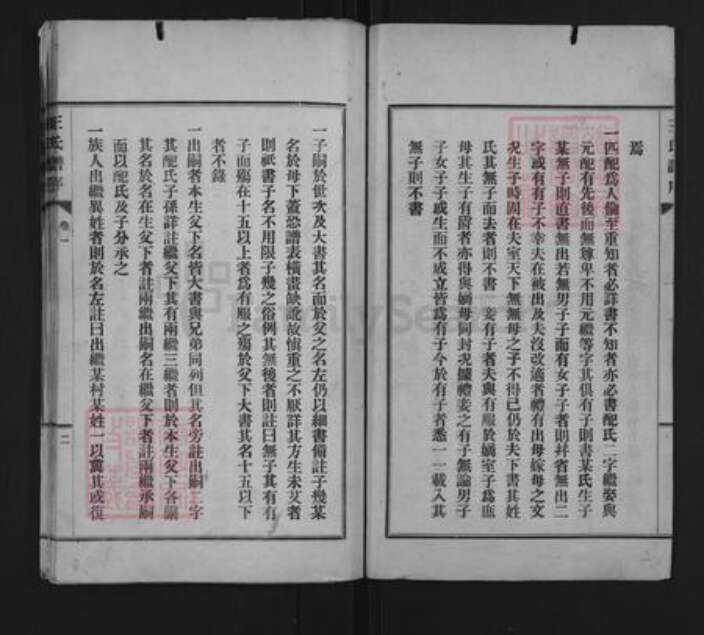 焉
一匹配爲人倫至重知者必詳書不知者亦必書配氏二字繼娶與
元配有先後而無尊卑不用元繼等字其俱有子則書某氏生子
某無子則直書無出若無男子子而有女子子者則幷省無出二
字或有有子不幸夫在被出及夫沒改適者禮有出母嫁母之文
况生子時固在夫室天下無無母之子不得已仍於夫下書其姓
氏其無子而去者則不書 妾有子者夫與有服於嫡室子爲庶
母其生子有爵者亦得與嫡母同封况據禮妾之有子無論男子
子女子子或生而不成立皆爲有子今於有子者悉一一載入其
無子則不書
一子嗣於世次及大書其名面於父之名左仍以細書備註子幾某
名於母下蓋恐譜表橫畫缺訛故愼重之不厭詳其方生未艾者
則祇書子名不用限子幾之俗例其無後者則註曰無子其有有
子而殤在十五以上者爲有服之殤於父下大書其名十五以下
者不錄
一出嗣者本生父下名皆大書與兄弟同列但其名旁註出嗣二字
其配氏子孫詳註繼父下其有兩繼三繼者則於本生父下各關
其名於名在生父下者註兩繼出嗣名在繼父下者註兩繼承嗣
面以配氏及子分承之
一族人出繼異姓者則於名左註曰出繼某村某姓一以冀其或復
王氏譜序
卷一
二